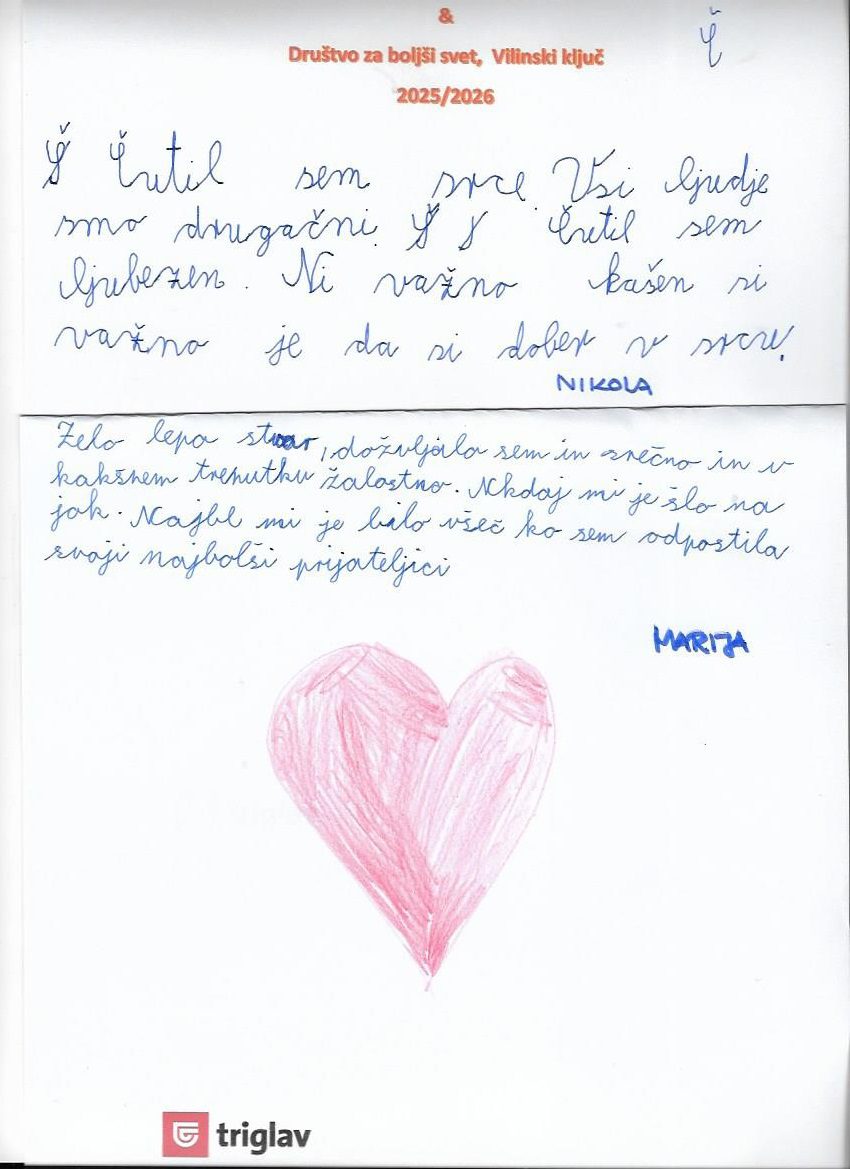 &
Č
Društvo za boljši svet, Vilinski ključ
2025/2026
Š Čutil sem srce. Vsi ljudje
smo drugačni. Š S Čutil sem
ljubezen. Ni važno kašen si
važno je da si dober v srcu!
NIKOLA
Zelo lepa stvar, doživljala sem in srečno in v
kakšnem trenutku žalostno. Nkdaj mi je šlo na
jok. Najbl mi je bilo všeč ko sem odpostila
svoji najbolši prijateljici
MARIJA
triglav